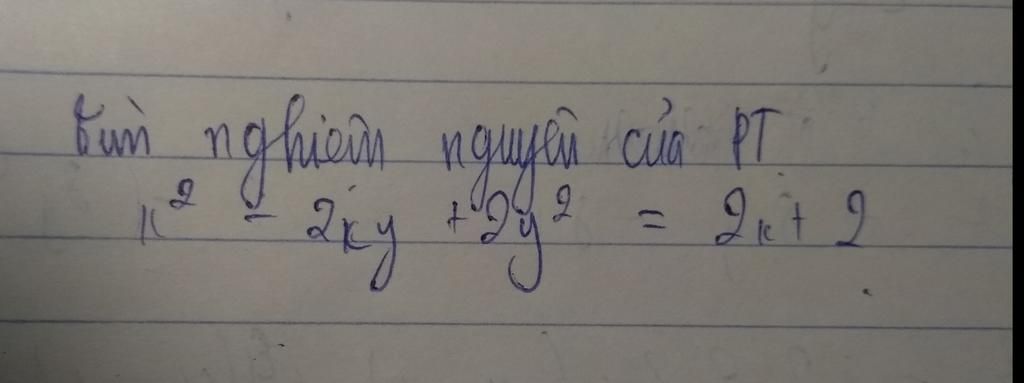 tìm nghiệm nguyên của PT
x² - 2xy + 2y² = 2x + 2